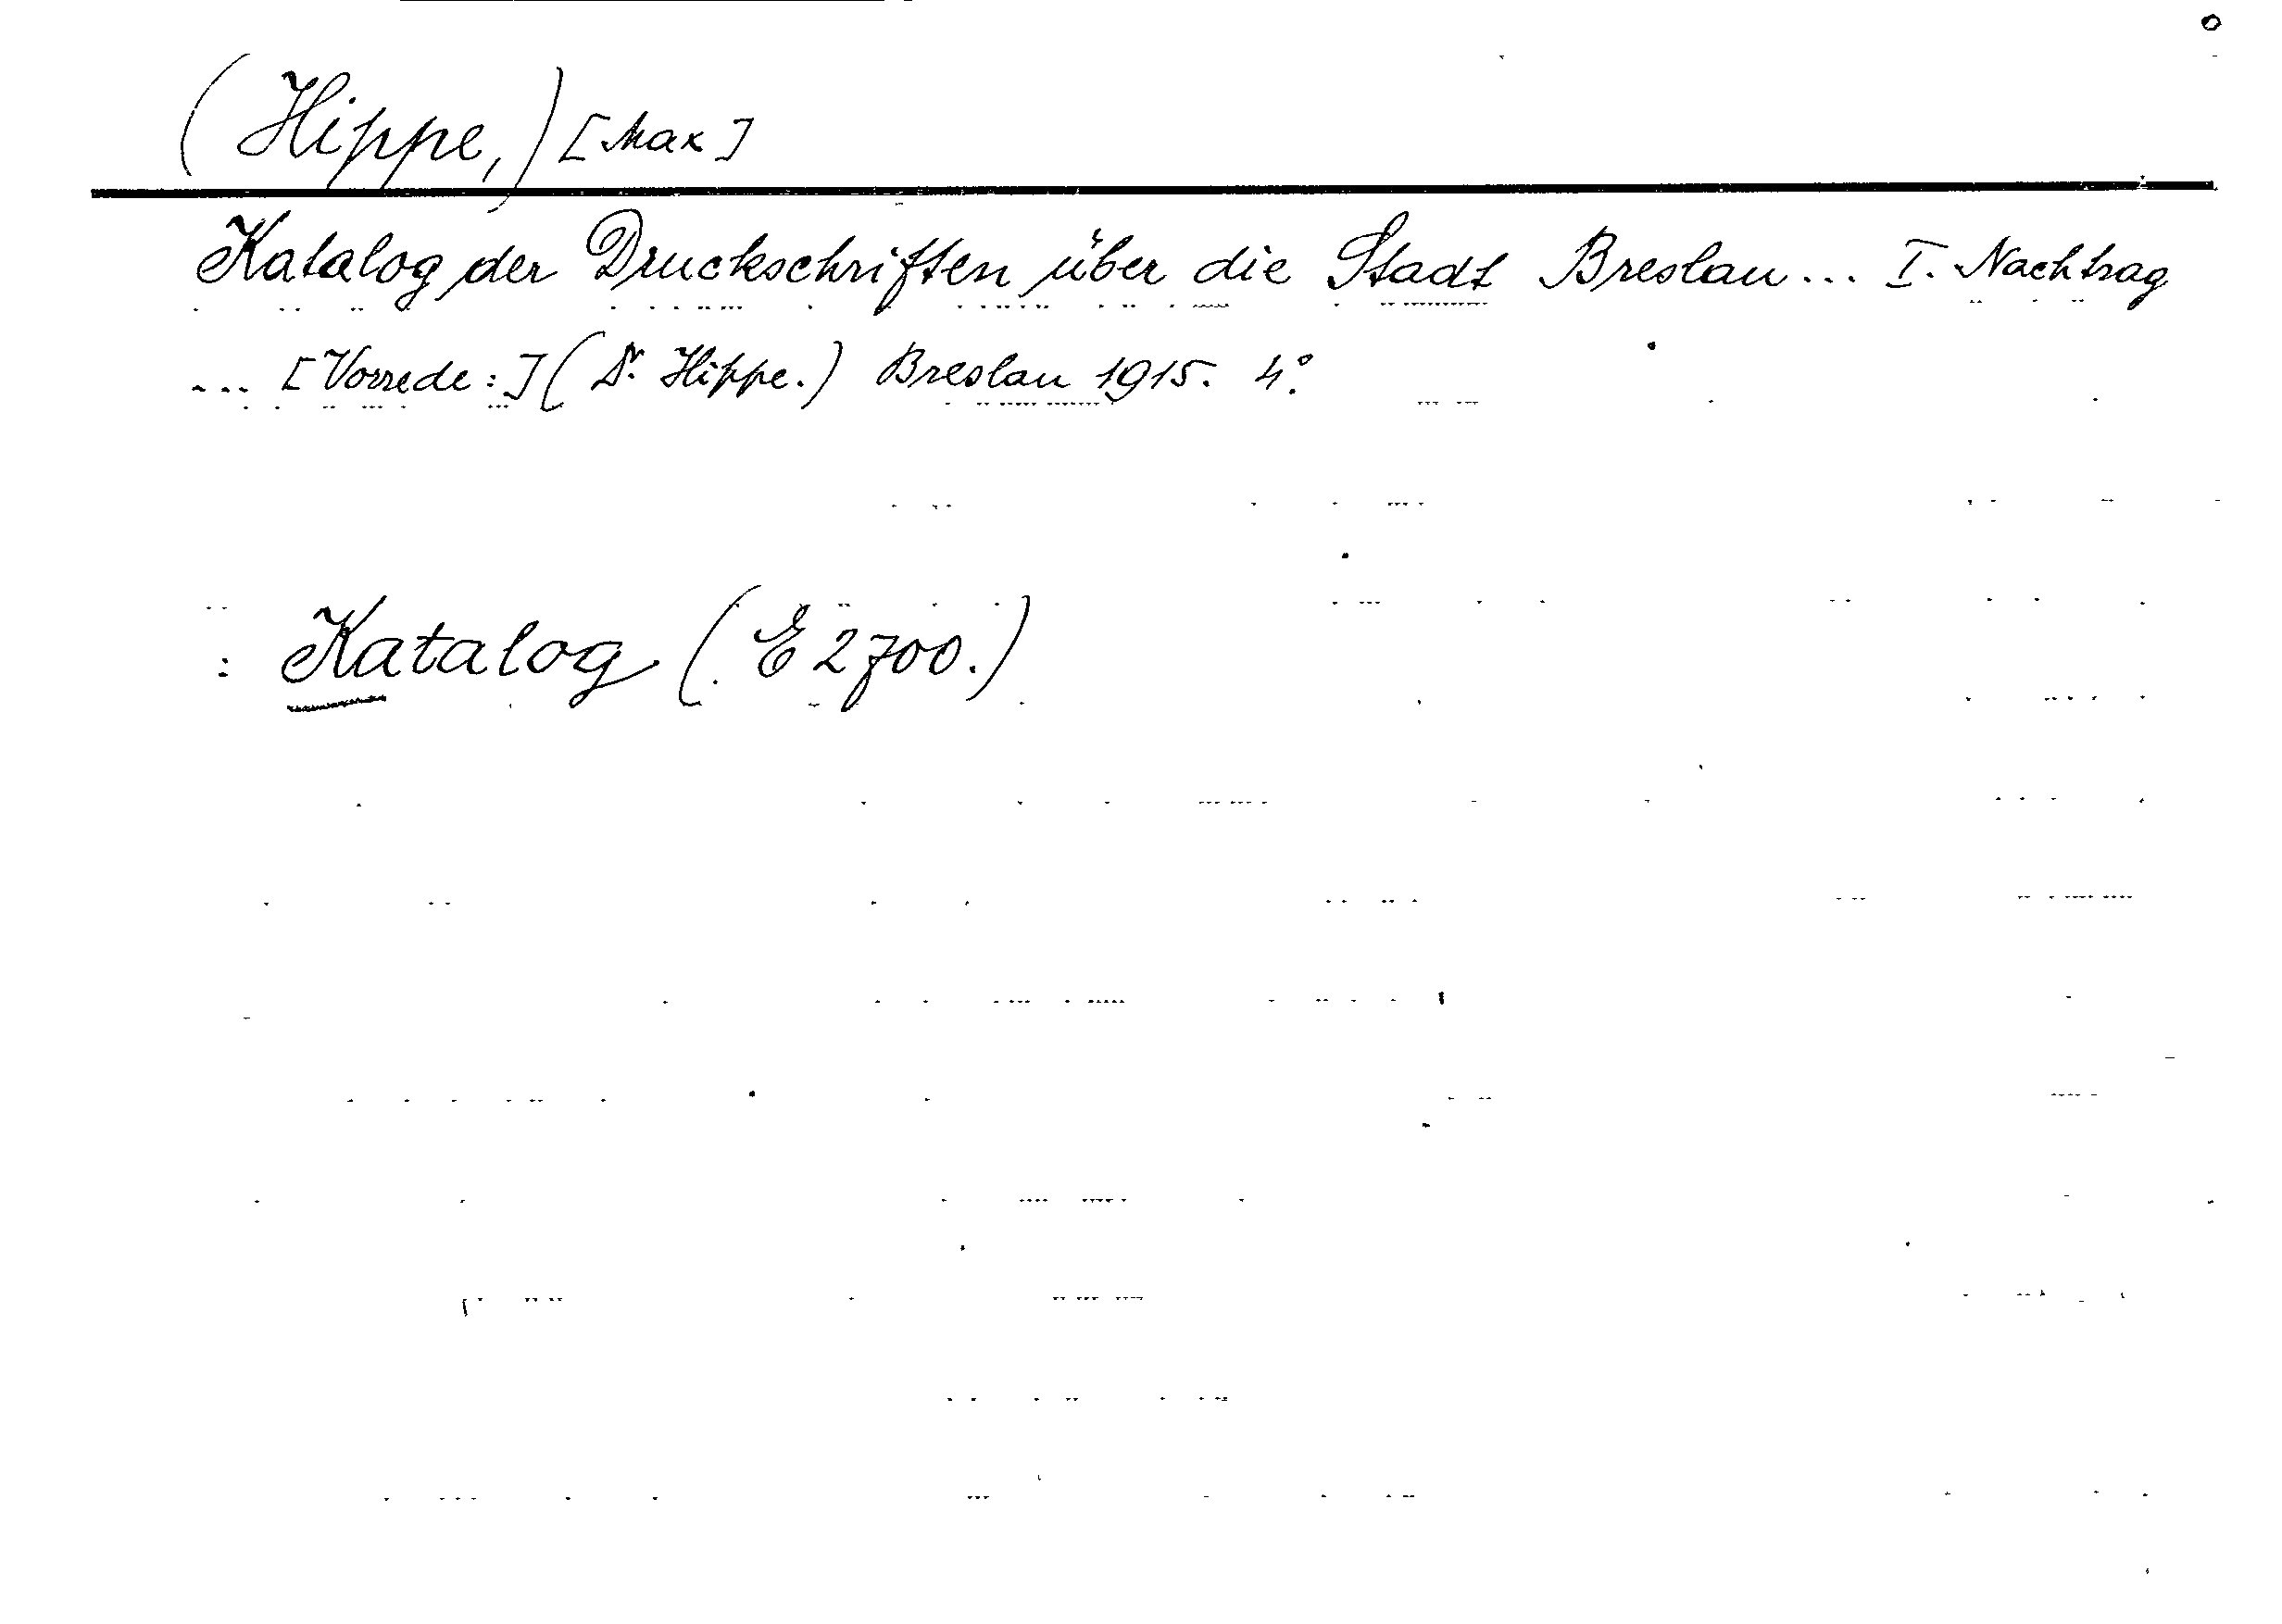 (Hippe,) [Max]
Katalog der Druckschriften über die Stadt Breslau ... I. Nachtrag
... [Vorrede:] (Dr. Hippe.) Breslau 1915. 4°.
: Katalog (E 2700.)